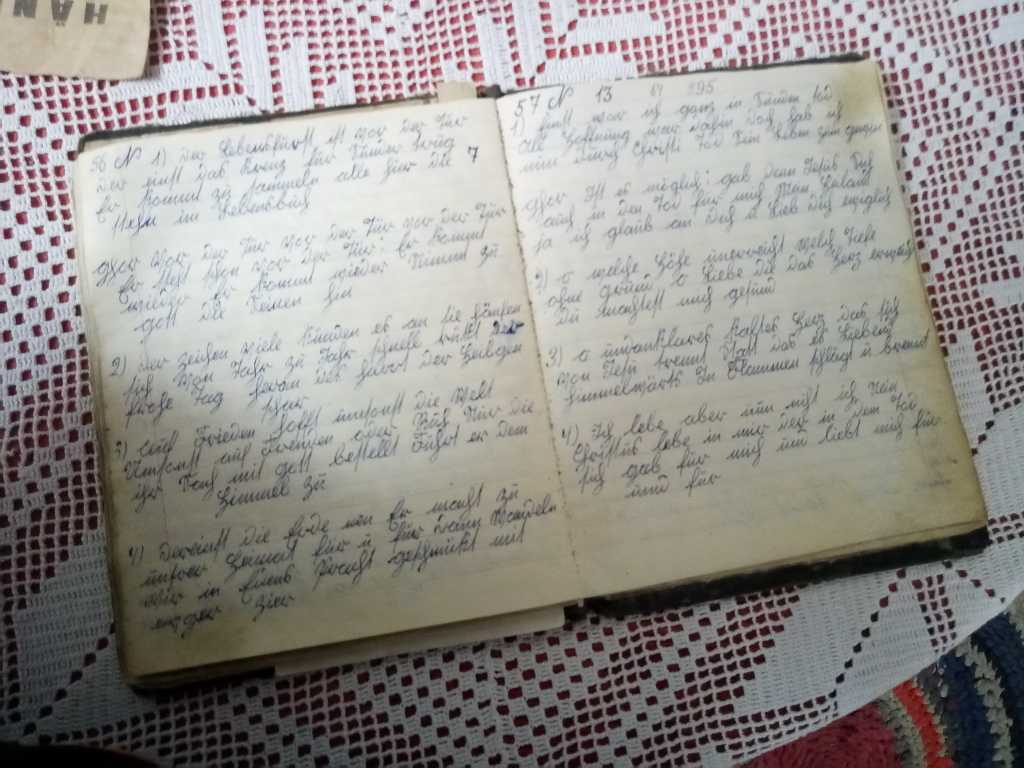 HÄN
56 N 1) Der Lebensfürst ist vor der Tür
Der einst das Kreuz für Sünder trug
Er kommt zu sammeln alle hier die 7
Stehn im Lebensbuch
Chor Vor der Tür vor der Tür
Er steht schon vor der Tür: Er kommt
wieder Er kommt wieder Nimmt zu
Gott die Seinen hin
2) Der Zeichen viele künden es an sie häufen
sich von Jahr zu Jahr schnell rückt der
große Tag heran des harrt der Zeugen
schar
3) Auf Frieden hofft umsonst die Welt
Umsonst auf Freuden oder Ruh Nur die
ihr Tag mit Gott bestellt Führt er dem
Himmel zu
4) Dereinst die Erde neu Er macht zu
unsrer Heimat für u für Wandeln
wir in Edens Pracht geschmückt mit
ewger Zier
57 N 13 67 295
1) Einst war ich ganz in Sünden tod
All Hoffnung war dahin Doch hab ich
nun durch Christi Tod Sein Leben zum
Chor Ist es möglich: gab denn Jesus Sich
auch in den Tod für mich Mein Heiland
ja ich glaub an dich u Lieb dich ewiglich
2) O welche Höhe unerreicht welch Tiefe
ohne Grund O Liebe die das Herz erweicht
Du machtest mich gesund
3) O undankbares kaltes Herz Das sich
von Jesu trennt Statt das es Liebend
himmelwärts In Flammen schlägt u brennt
4) Ich lebe aber nun nicht ich Nein
Christus lebe in mir Der in dem Tod
sich gab für mich und liebt mich für
und für